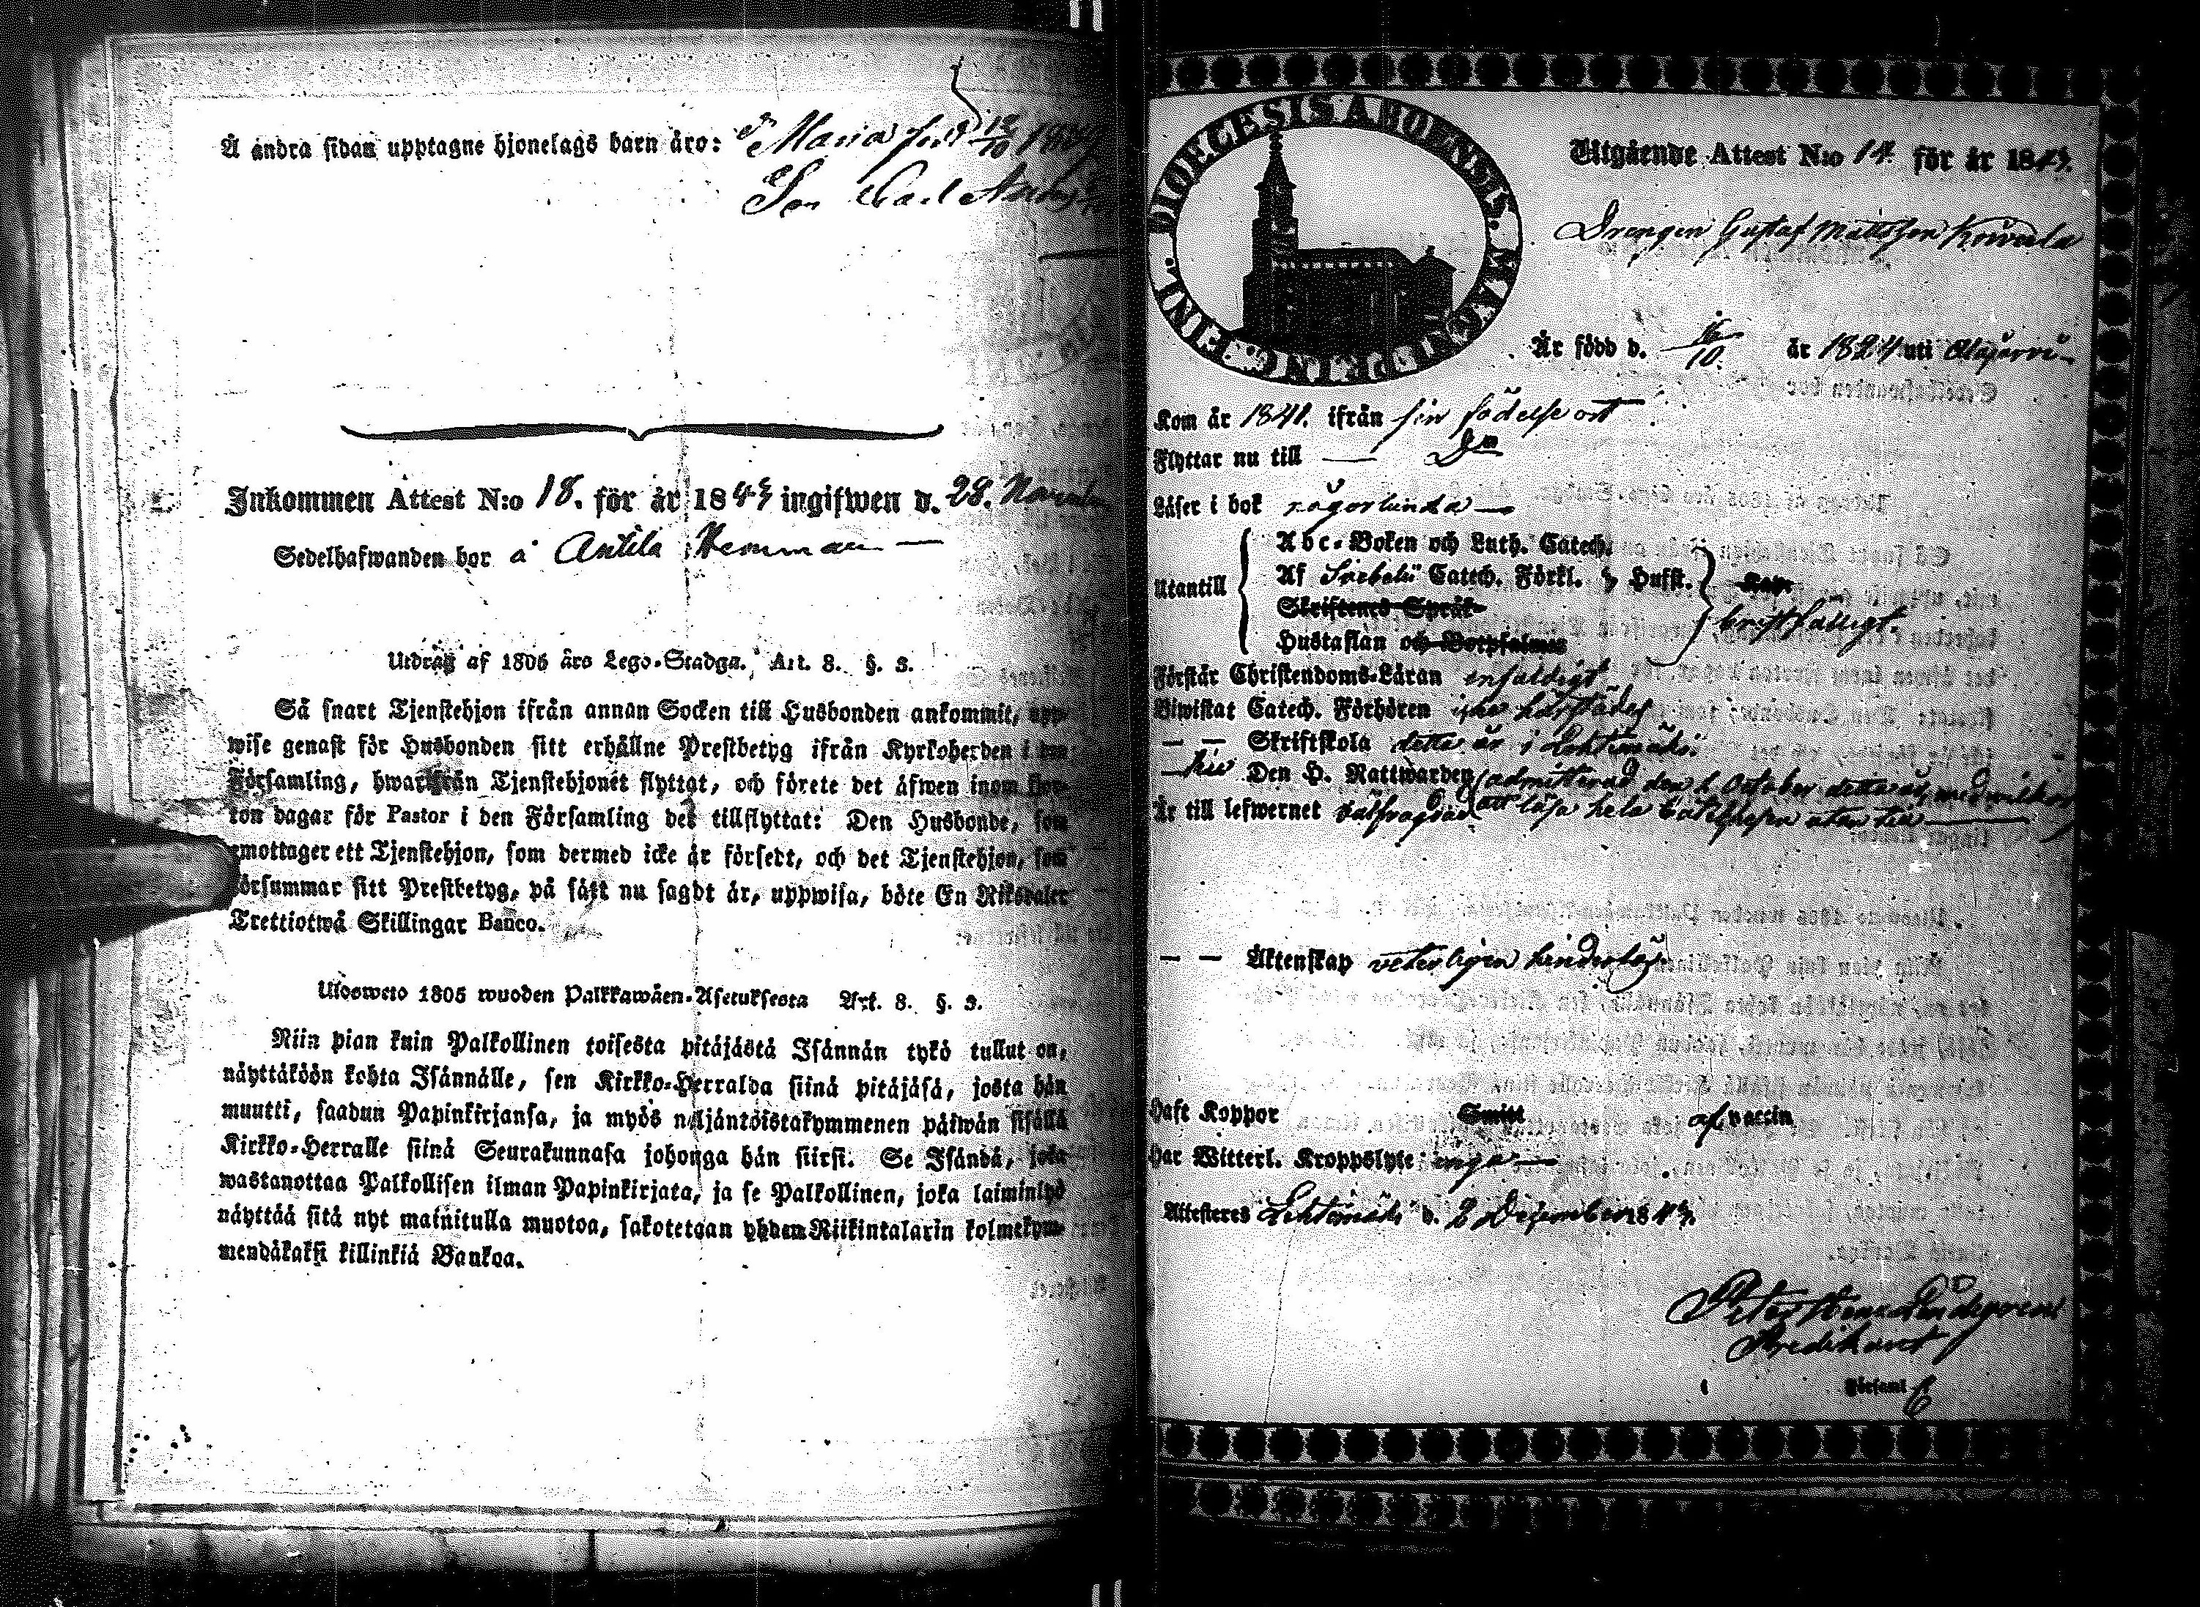 Å andra sidan upptagne hjonelags barn äro: Dr Maria född 12/10 18
Son Carl
Inkommen Attest N:o 18. för år 1843 ingifwen d. 28. November
Sedelhafwanden bor å Antila Hemman —
Utdrag af 1805 års Lego-Stadga. Art. 8. §. 3.
Så snart Tjenstehjon ifrån annan Socken till Husbonden ankommit, upp-
wise genast för Husbonden sitt erhållne Prestbetyg ifrån Kyrkoherden i den
Församling, hwarifrån Tjenstehjonet flyttat, och förete det äfwen inom fjor-
ton dagar för Pastor i den Församling det tillflyttat: Den Husbonde, som
emottager ett Tjenstehjon, som dermed icke är försedt, och det Tjenstehjon, som
försummar sitt Prestbetyg, på sätt nu sagdt är, uppwisa, böte En Riksdaler
Trettiotwå Skillingar Banco.
Ulosweto 1805 wuoden Palkkawäen-Asetuksesta Art. 8. §. 3.
Niin pian kuin Palkollinen toisesta pitäjästä Isännän tykö tullut on,
näyttäköön kohta Isännälle, sen Kirkko-Herralda siinä pitäjäsä, josta hän
muutti, saadun Papinkirjansa, ja myös neljäntöistakymmenen päiwän sisällä
Kirkko-Herralle siinä Seurakunnasa johonga hän siirsi. Se Isändä, joka
wastanottaa Palkollisen ilman Papinkirjata, ja se Palkollinen, joka laiminlyö
näyttää sitä nyt mainitulla muotoa, sakotetaan yhden Riikintalarin kolmekym-
mendäkaksi killinkiä Bankoa.
DIOECESIS ABOENSIS. MAGN. PRINC. FINL.
Utgående Attest N:o 14. för år 1843.
Drengen Gustaf Mattsson Kowerla
Är född d. 16/10. år 1824 uti Alajärvi
Kom år 1841. ifrån sin födelse ort
Flyttar nu till — Do
Läser i bok någorlunda —
Utantill
Abc-Boken och Luth. Catech.
Af Svebelii Catech. Förkl. & Husst.
Skriftenes Språk
Hustaflan och Botpsalmer
bristfälligt.
Förstår Christendoms-Läran enfaldigt
Biwistat Catech. Förhören icke härstädes
— — Skriftskola detta år i Lehtimäki.
— Den H. Nattwarden admitterad den 1 October detta år, med wilkor
Är till lefwernet välfrägdad att läsa hela Catechesen utan till —
— — Äktenskap veterligen hinderslös
Haft Koppor Smitt af vaccin
Har Witterl. Kroppslyte: inga —
Attesteres Lehtimäki d. 2 December 1843.
Predikant
Församl